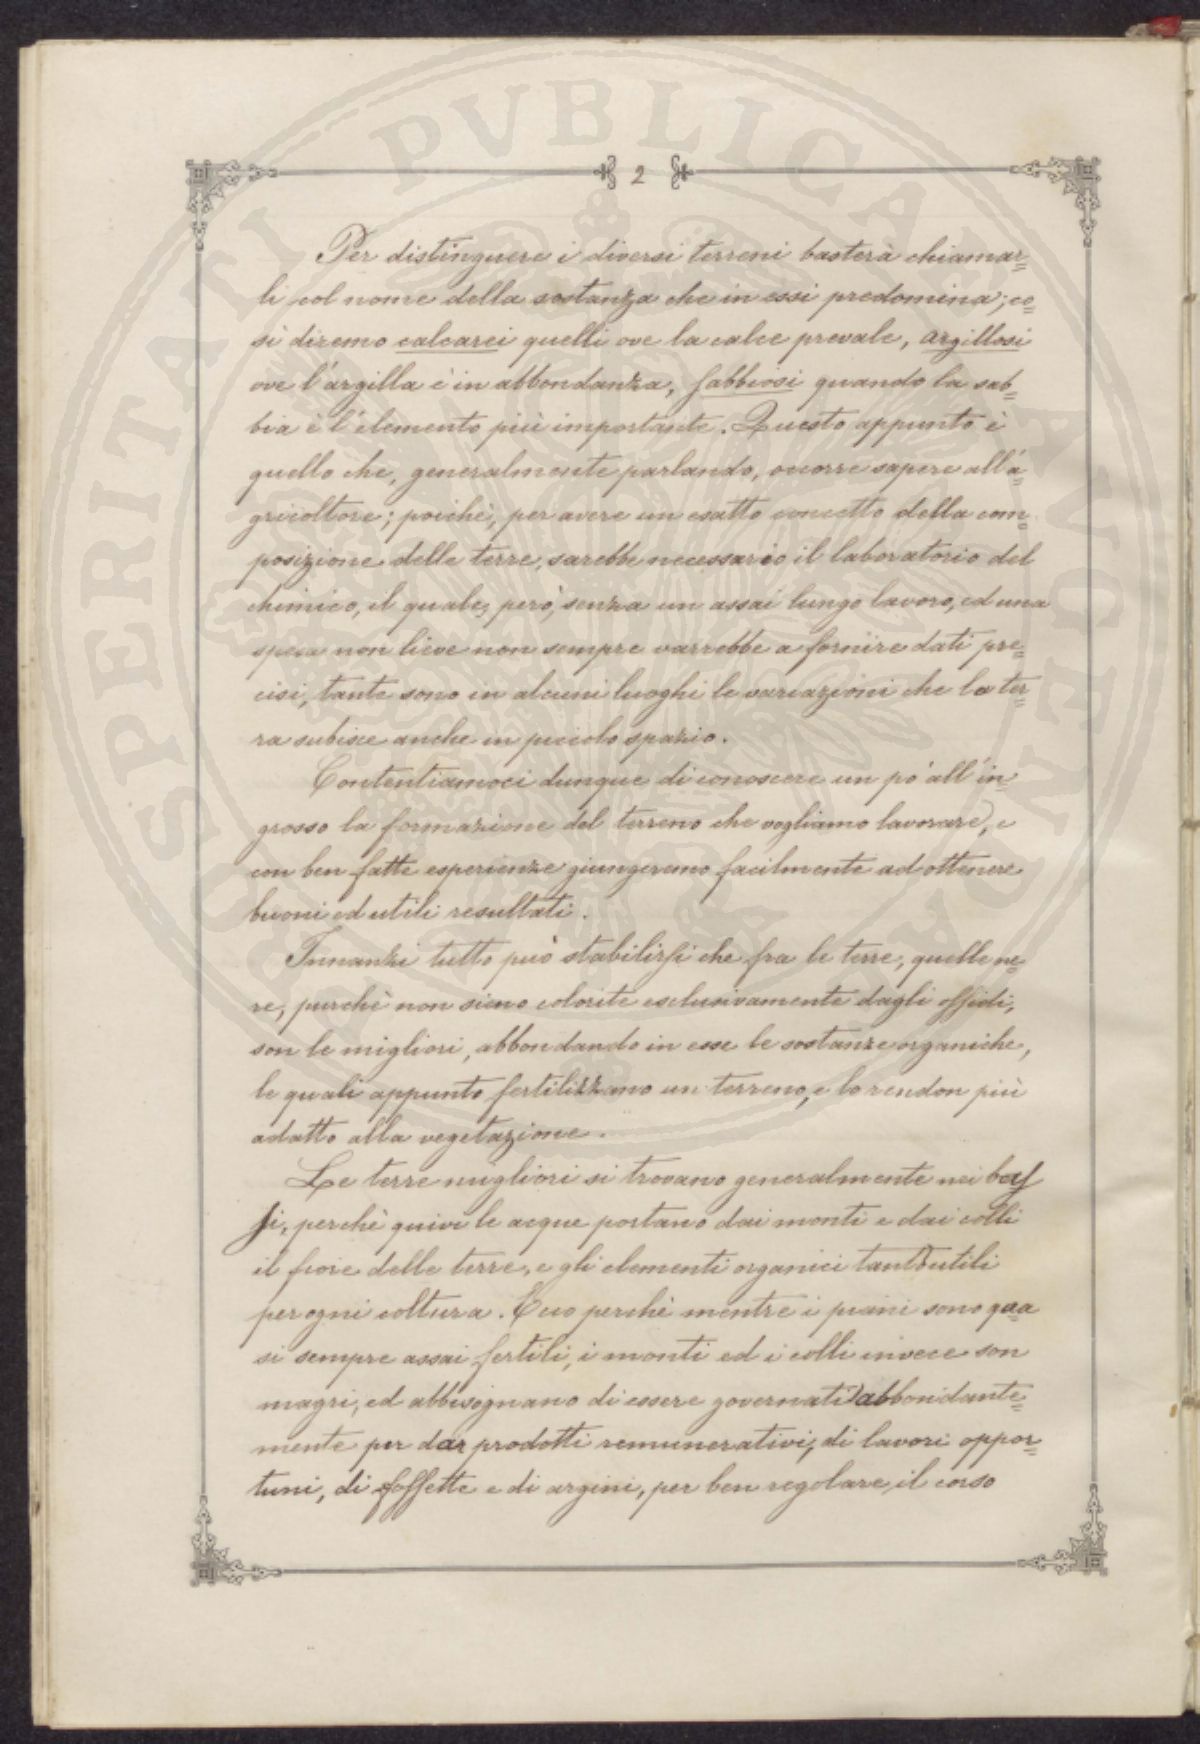 2
Per distinguere i diversi terreni basterà chiamar=
li col nome della sostanza che in essi predomina; co=
sì diremo calcarei quelli ove la calce prevale, argillosi
ove l'argilla è in abbondanza, sabbiosi quando la sab=
bia è l'elemento più importante. Questo appunto è
quello che, generalmente parlando, occorre sapere all'a=
gricoltore; poichè, per avere un esatto concetto della com=
posizione delle terre, sarebbe necessario il laboratorio del
chimico, il quale, però, senza un assai lungo lavoro, ed una
spesa non lieve non sempre varrebbe a fornire dati pre=
cisi, tante sono in alcuni luoghi le variazioni che la ter=
ra subisce anche in piccolo spazio.
Contentiamoci dunque di conoscere un po' all'in=
grosso la formazione del terreno che vogliamo lavorare, e
con ben fatte esperienze giungeremo facilmente ad ottenere
buoni ed utili resultati.
Innanzi tutto può stabilirsi che fra le terre, quelle ne=
re, purchè non sieno colorite esclusivamente dagli ossidi,
son le migliori, abbondando in esse le sostanze organiche,
le quali appunto fertilizzano un terreno, e lo rendon più
adatto alla vegetazione.
Le terre migliori si trovano generalmente nei bas
si, perchè quivi le acque portano dai monti e dai colli
il fiore delle terre, e gli elementi organici tanto utili
per ogni coltura. Ecco perchè mentre i piani sono qua=
si sempre assai fertili, i monti ed i colli invece son
magri, ed abbisognano di essere governati abbondante=
mente per dar prodotti remunerativi, di lavori oppor=
tuni, di fossette e di argini, per ben regolare il corso
SPERITATI PVBLICAE AVGENDAE